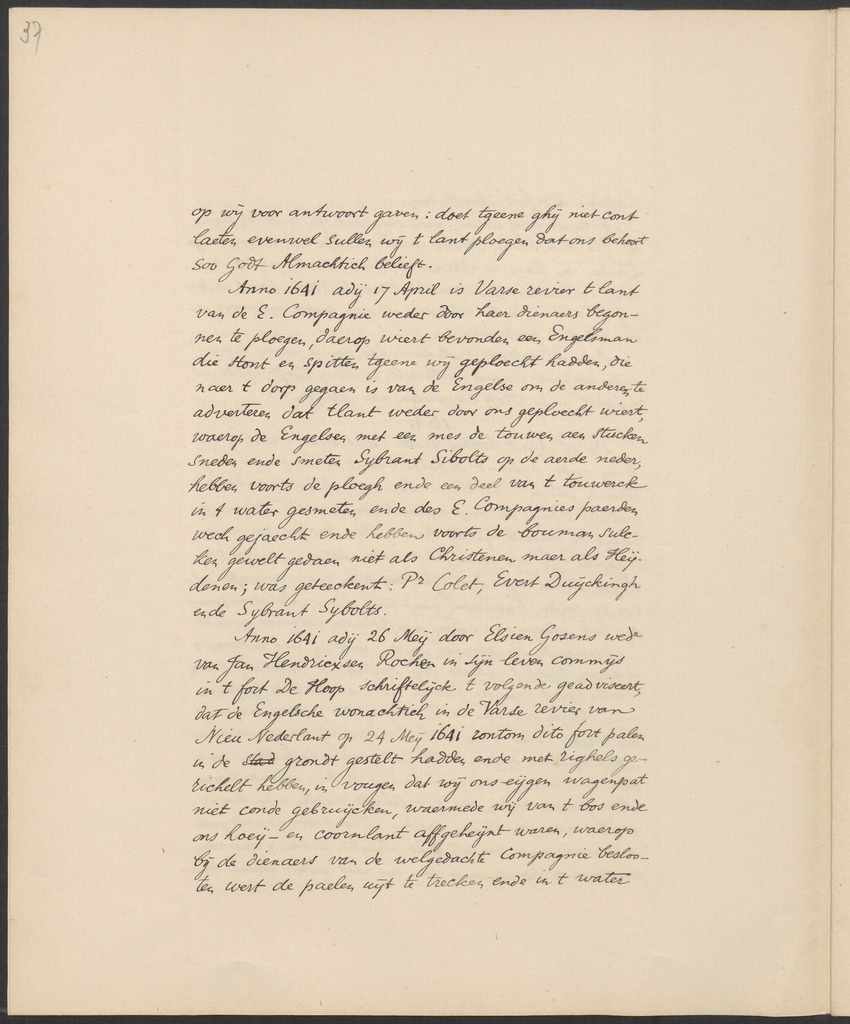 37
op wij voor antwoort gaven: doet tgeene ghij niet cont
laeten evenwel sullen wij t lant ploegen dat ons behoort
soo Godt Almachtich belieft.
Anno 1641 adij 17 April is Varse revier t lant
van de E. Compagnie weder door haer dienaers begon-
nen te ploegen, daerop wiert bevonden een Engelsman
die stont en spitten tgeene wij geploecht hadden, die
naer t dorp gegaen is van de Engelse om de anderen te
adverteren dat tlant weder door ons geploecht wiert,
waerop de Engelsen met een mes de touwen aen stucken
sneden ende smeten Sybrant Sibolts op de aerde neder,
hebben voorts de ploegh ende een deel van t touwerck
in t water gesmeten ende des E. Compagnies paerden
wech gejaecht ende hebben voorts de bouman sulc-
ken gewelt gedaen niet als Christenen maer als Heij-
denen; was geteeckent: Pr Colet, Evert Duijckingh
ende Sybrant Sybolts.
Anno 1641 adij 26 Meij door Elsien Gosens wede
van Jan Hendricxsen Rochen in sijn leven commijs
in t fort De Hoop schriftelijck t volgende geadviseert,
dat de Engelsche wonachtich in de Varse revier van
Nieu Nederlant op 24 Meij 1641 rontom dito fort palen
in de stad grondt gestelt hadden ende met righels ge-
richelt hebben, in vougen dat wij ons eijgen wagenpat
niet conde gebruijcken, waermede wij van t bos ende
ons hoeij- en coornlant affgeheijnt waren, waerop
bij de dienaers van de welgedachte Compagnie besloo-
ten wert de paelen uijt te trecken ende in t water